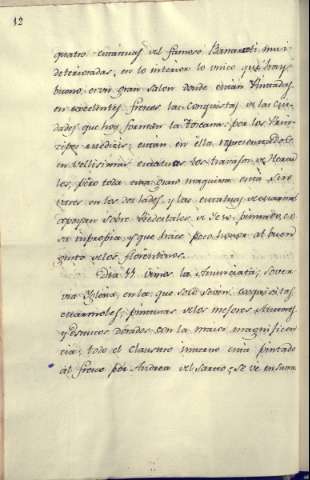 12
quatro estatuas del famoso Banarroti mui
deterioradas, en lo interior lo unico que hay
bueno, es un gran salon donde están Pintadas
en excelentes frescos las Conquistas de las Ciu-
dades que hoy forman la Toscana por los Prin-
cipes Medicis; están en ella representados
en bellisimas estatuas los trabajos de Hercu-
les, pero toda esta gran maquina está
en los dos lados, y las estatuas de marmol
apoyan sobre Piedestales de
impropia, y que hace poco honor al buen
gusto de los florentinos.
Dia 11 vimos la Anunciata, sover-
via Yglesia, en la que solo se ven exquisitos
marmoles, pinturas de los mejores Autores,
y Estucos dorados con la maior magnificen-
cia; todo el Claustro immenso está pintado
al fresco por Andrea del Sarto, se ve en una